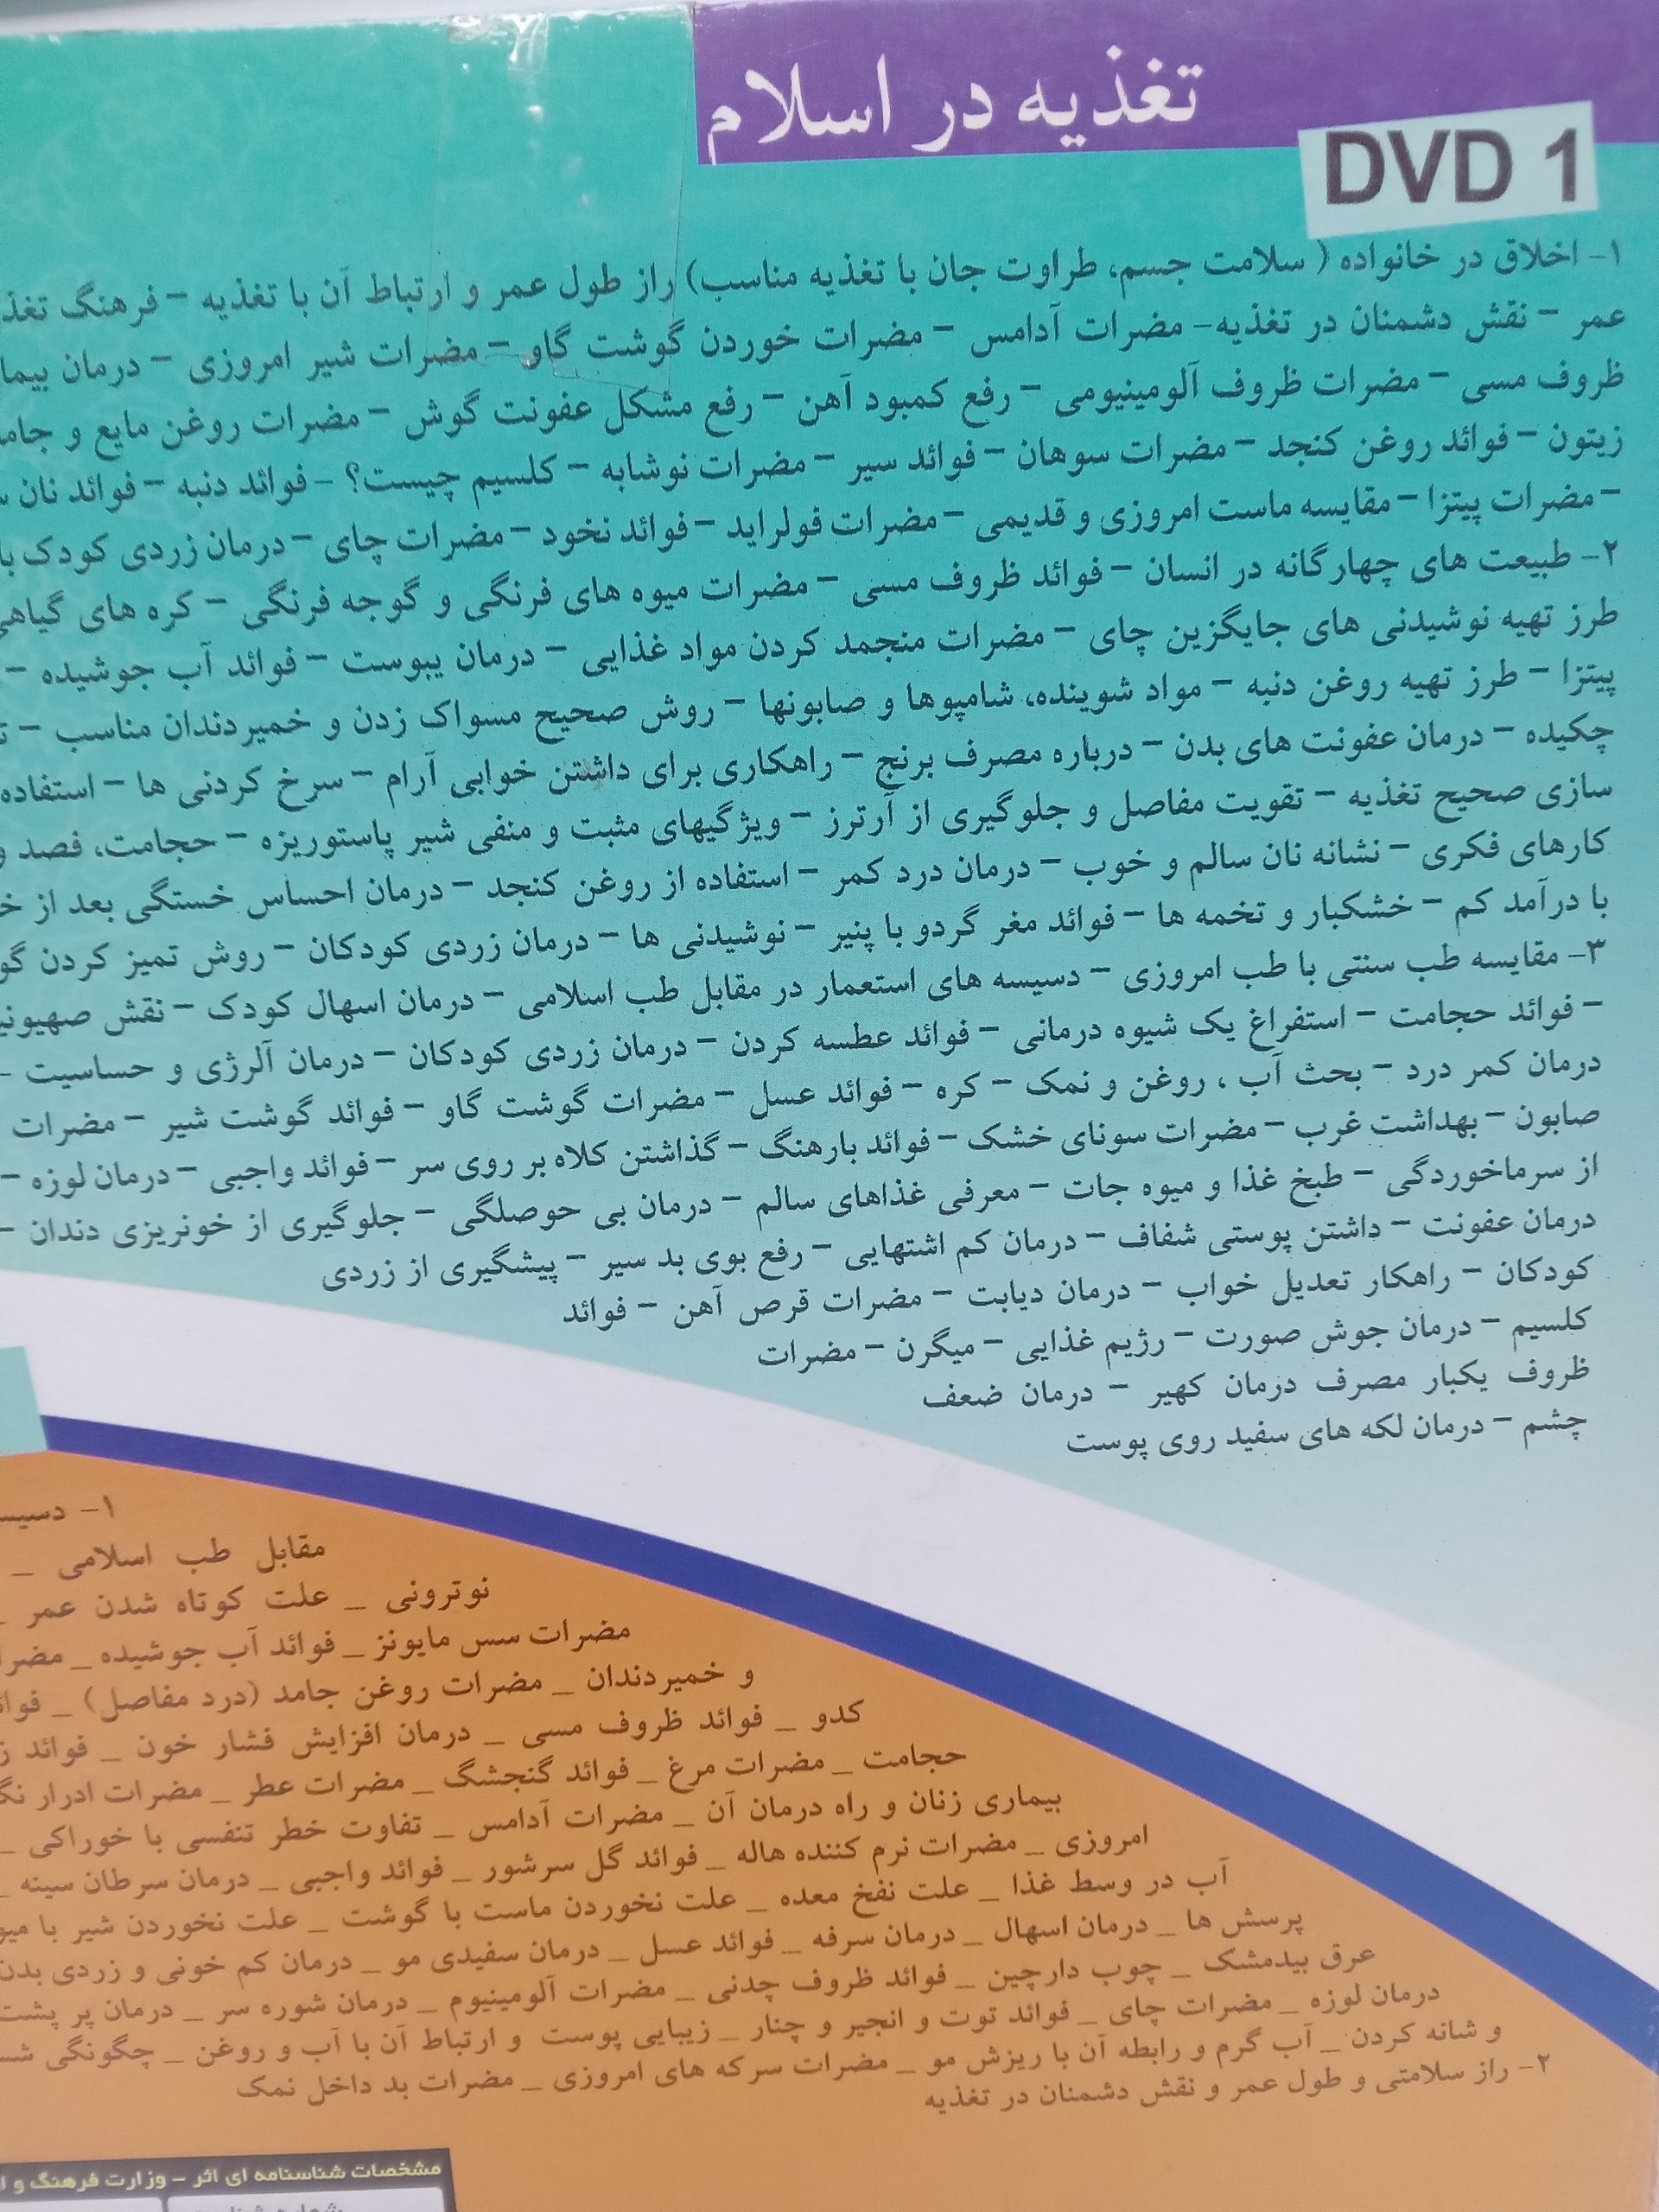 تغذیه در اسلام
DVD 1
۱- اخلاق در خانواده ( سلامت جسم، طراوت جان با تغذیه مناسب) راز طول عمر و ارتباط آن با تغذیه – فرهنگ
عمر – نقش دشمنان در تغذیه– مضرات آدامس – مضرات خوردن گوشت گاو – مضرات شیر امروزی – درمان
ظروف مسی – مضرات ظروف آلومینیومی – رفع کمبود آهن – رفع مشکل عفونت گوش – مضرات روغن مایع و
زیتون – فوائد روغن کنجد – مضرات سوهان – فوائد سیر – مضرات نوشابه – کلسیم چیست؟ – فوائد دنبه – فوائد نان
– مضرات پیتزا – مقایسه ماست امروزی و قدیمی – مضرات فولراید – فوائد نخود – مضرات چای – درمان زردی کودک
۲- طبیعت های چهارگانه در انسان – فوائد ظروف مسی – مضرات میوه های فرنگی و گوجه فرنگی – کره های
طرز تهیه نوشیدنی های جایگزین چای – مضرات منجمد کردن مواد غذایی – درمان یبوست – فوائد آب جوشیده –
پیتزا – طرز تهیه روغن دنبه – مواد شوینده، شامپوها و صابونها – روش صحیح مسواک زدن و خمیردندان مناسب –
چکیده – درمان عفونت های بدن – درباره مصرف برنج – راهکاری برای داشتن خوابی آرام – سرخ کردنی ها – استفاده
سازی صحیح تغذیه – تقویت مفاصل و جلوگیری از آرترز – ویژگیهای مثبت و منفی شیر پاستوریزه – حجامت، فصد و
کارهای فکری – نشانه نان سالم و خوب – درمان درد کمر – استفاده از روغن کنجد – درمان احساس خستگی بعد از
با درآمد کم – خشکبار و تخمه ها – فوائد مغر گردو با پنیر – نوشیدنی ها – درمان زردی کودکان – روش تمیز کردن
۳- مقایسه طب سنتی با طب امروزی – دسیسه های استعمار در مقابل طب اسلامی – درمان اسهال کودک – نقش
– فوائد حجامت – استفراغ یک شیوه درمانی – فوائد عطسه کردن – درمان زردی کودکان – درمان آلرژی و حساسیت –
درمان کمر درد – بحث آب ، روغن و نمک – کره – فوائد عسل – مضرات گوشت گاو – فوائد گوشت شیر – مضرات
صابون – بهداشت غرب – مضرات سونای خشک – فوائد بارهنگ – گذاشتن کلاه بر روی سر – فوائد واجبی – درمان لوزه –
از سرماخوردگی – طبخ غذا و میوه جات – معرفی غذاهای سالم – درمان بی حوصلگی – جلوگیری از خونریزی دندان –
درمان عفونت – داشتن پوستی شفاف – درمان کم اشتهایی – رفع بوی بد سیر – پیشگیری از زردی
کودکان – راهکار تعدیل خواب – درمان دیابت – مضرات قرص آهن – فوائد
کلسیم – درمان جوش صورت – رژیم غذایی – میگرن – مضرات
ظروف یکبار مصرف درمان کهیر – درمان ضعف
چشم – درمان لکه های سفید روی پوست
۱-
مقابل طب اسلامی _
نوترونی _ علت کوتاه شدن عمر _
مضرات سس مایونز _ فوائد آب جوشیده _
و خمیردندان _ مضرات روغن جامد (درد مفاصل) _
کدو _ فوائد ظروف مسی _ درمان افزایش فشار خون _ فوائد
حجامت _ مضرات مرغ _ فوائد گنجشگ _ مضرات عطر _ مضرات ادرار
بیماری زنان و راه درمان آن _ مضرات آدامس _ تفاوت خطر تنفسی با خوراکی _
امروزی _ مضرات نرم کننده هاله _ فوائد گل سرشور _ فوائد واجبی _ درمان سرطان سینه _
آب در وسط غذا _ علت نفخ معده _ علت نخوردن ماست با گوشت _ علت نخوردن شیر با
پرسش ها _ درمان اسهال _ درمان سرفه _ فوائد عسل _ درمان سفیدی مو _ درمان کم خونی و زردی بدن
عرق بیدمشک _ چوب دارچین _ فوائد ظروف چدنی _ مضرات آلومینیوم _ درمان شوره سر _ درمان پر پشت
درمان لوزه _ مضرات چای _ فوائد توت و انجیر و چنار _ زیبایی پوست و ارتباط آن با آب و روغن _ چگونگی
و شانه کردن _ آب گرم و رابطه آن با ریزش مو _ مضرات سرکه های امروزی _ مضرات بد داخل نمک
۲- راز سلامتی و طول عمر و نقش دشمنان در تغذیه
مشخصات شناسنامه ای اثر – وزارت فرهنگ و